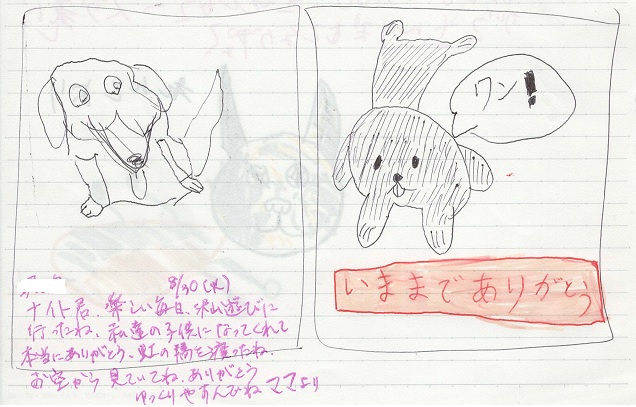 ワン!
いままでありがとう
8/30(火)
ナイト君、楽しい毎日、沢山遊びに
行ったね、私達の子供になってくれて
本当にありがとう、虹の橋を渡ったね。
お空から見ていてね、ありがとう
ゆっくりやすんでね ママより